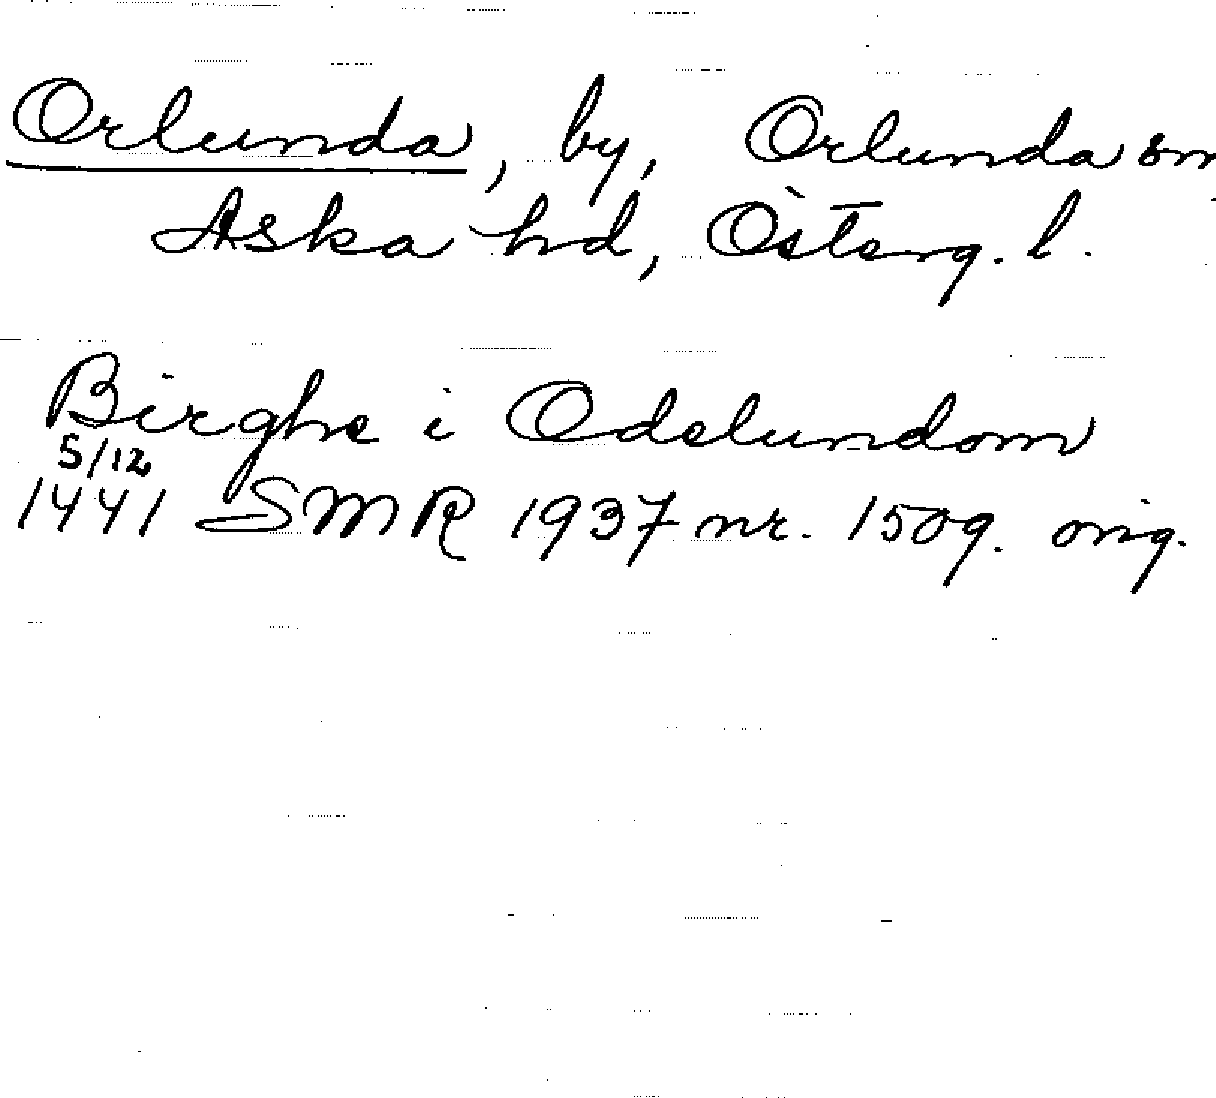 Orlunda, by, Orlunda sn
Aska hd, Österg. l.
Birghe i Odelundom
5/12
1441 SMR 1937 nr. 1509. orig.